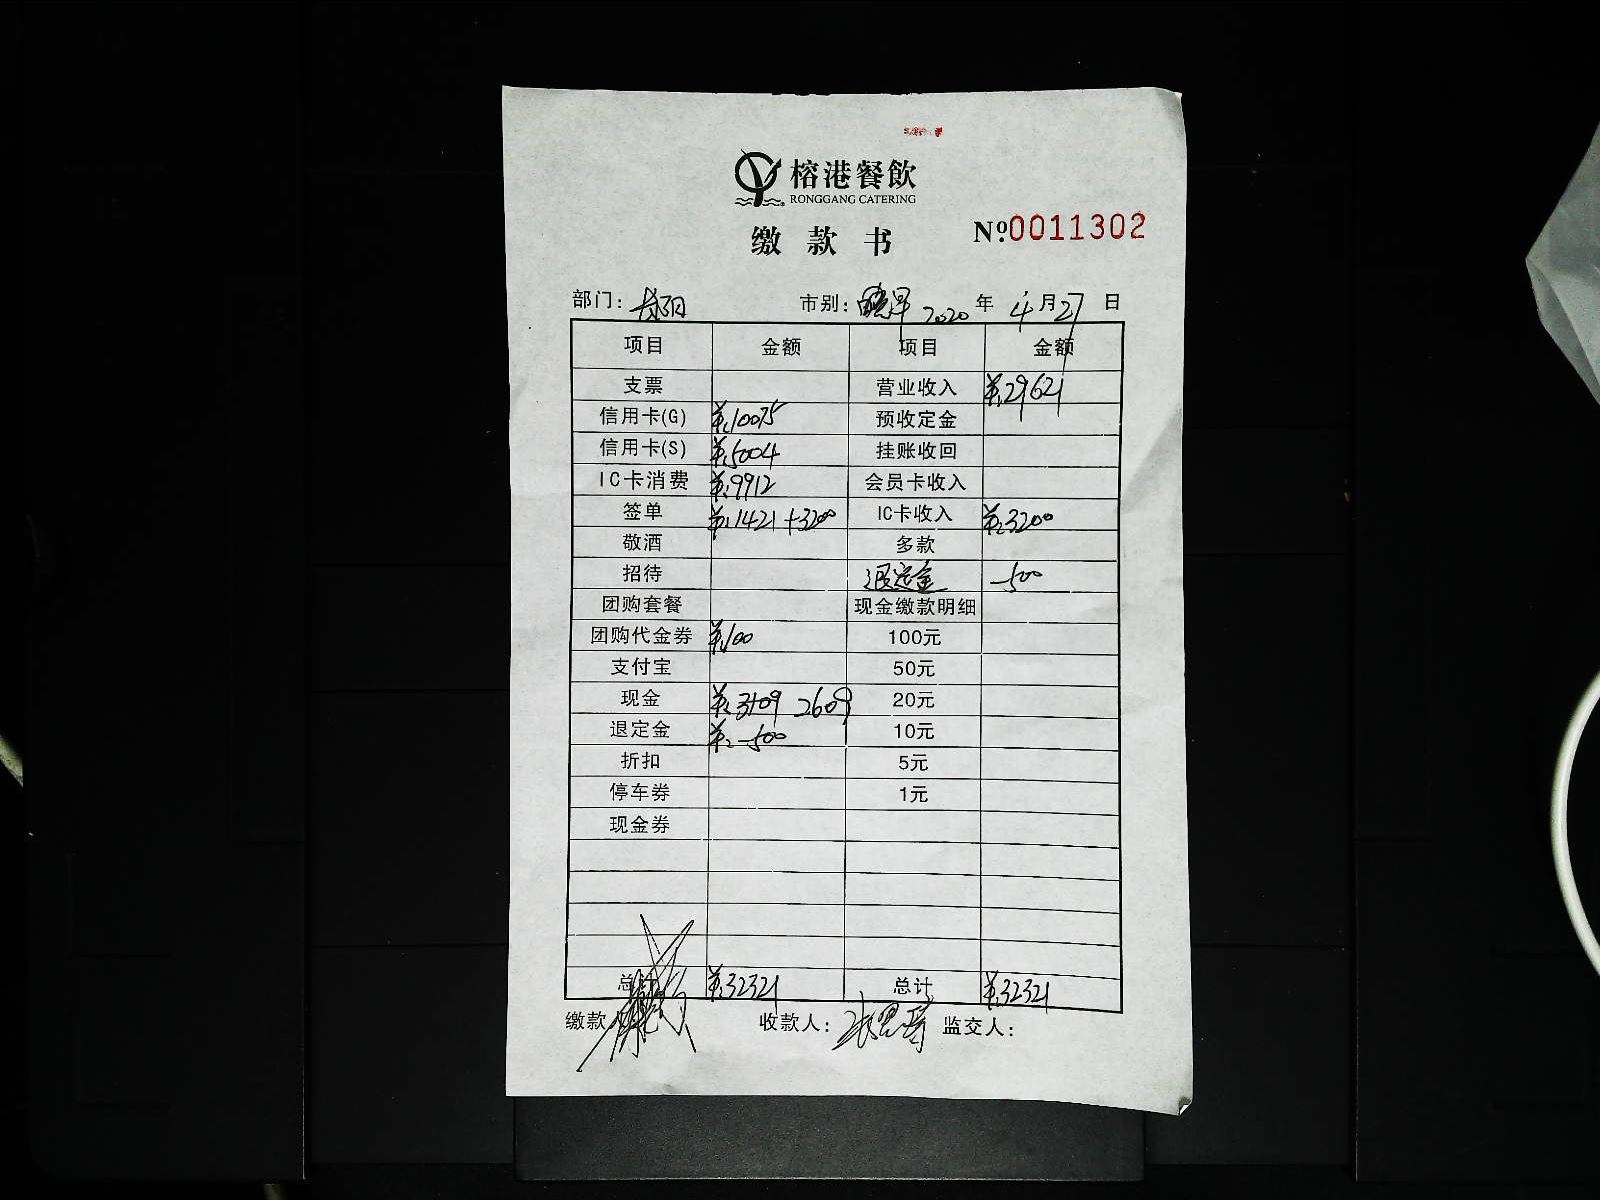 榕港餐飲
RONGGANG CATERING
缴款书 No.0011302
部门: 市别: 晚早 2020年4月27日
项目 金额 项目 金额
支票 营业收入 ¥:29621
信用卡(G) ¥:10075 预收定金
信用卡(S) ¥:5004 挂账收回
IC卡消费 ¥:9912 会员卡收入
签单 ¥:1421+3200 IC卡收入 ¥:3200
敬酒 多款
招待 退定金 -500
团购套餐 现金缴款明细
团购代金券 ¥:100 100元
支付宝 50元
现金 ¥:3109 2609 20元
退定金 ¥:-500 10元
折扣 5元
停车券 1元
现金券
总计 ¥:32321 总计 ¥:32321
缴款 收款人: 监交人: